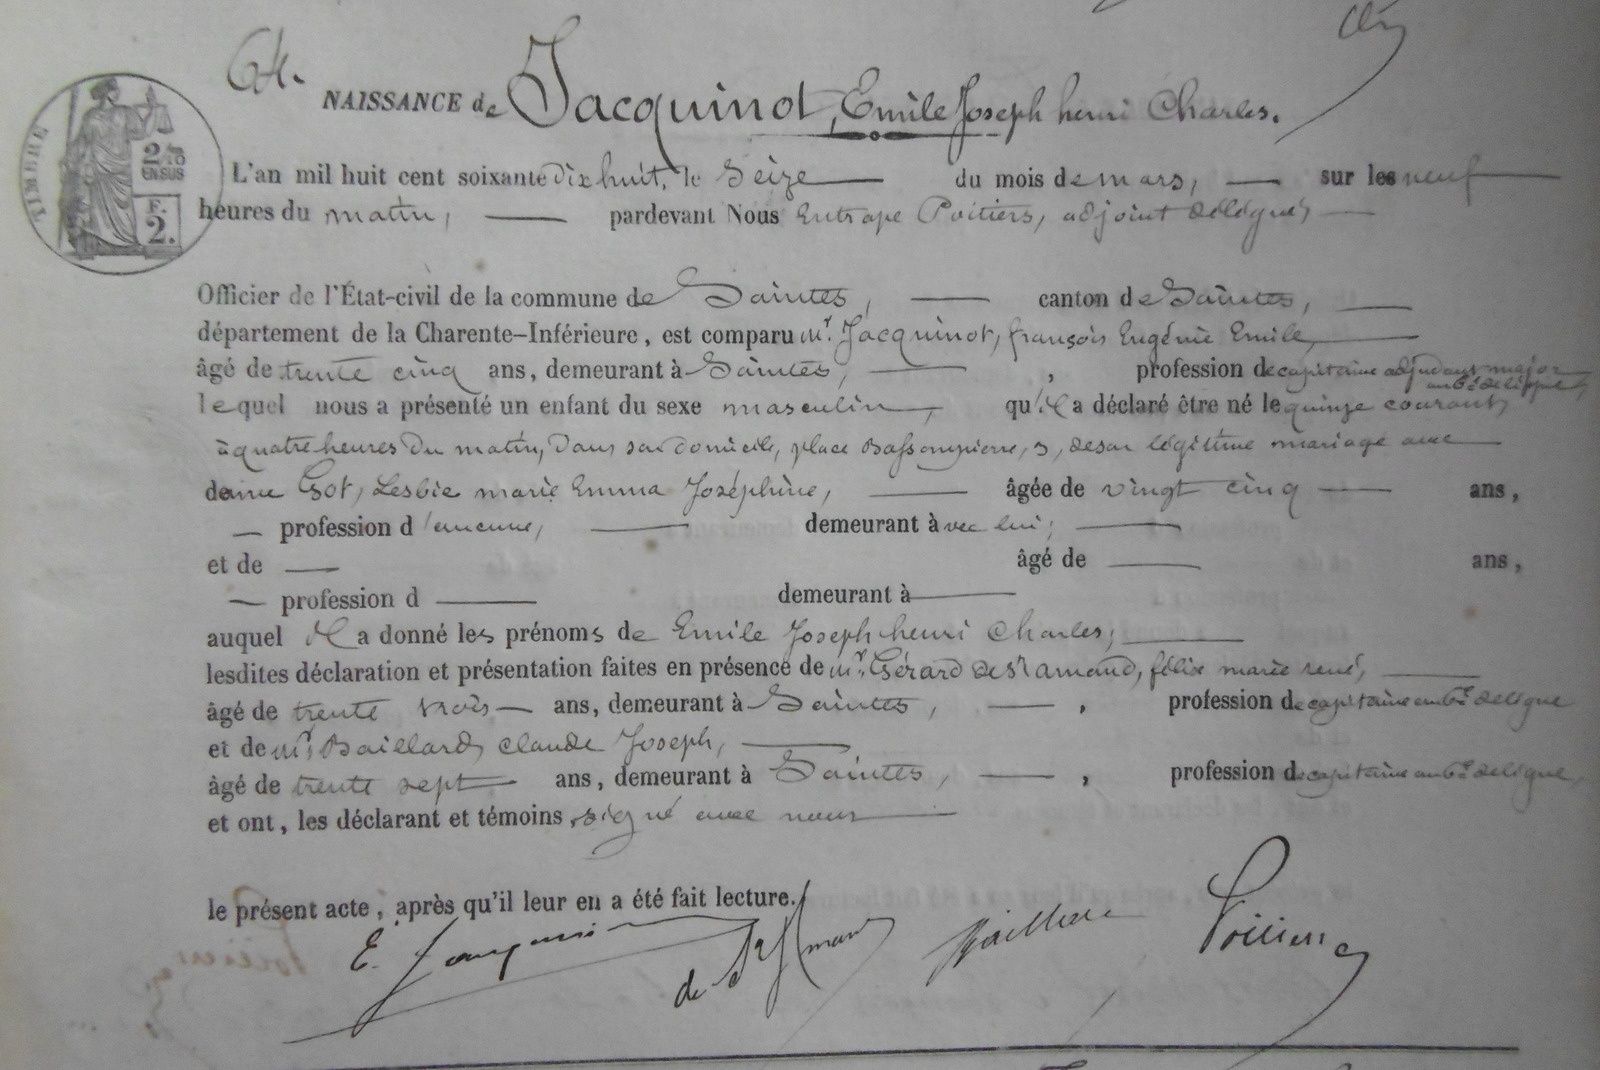 64.
NAISSANCE de Jacquinot, Emile Joseph henri Charles.
TIMBRE
2/10
EN SUS
F.
2.
L'an mil huit cent soixante Dix huit, le Seize du mois de mars, sur les neuf
heures du matin, pardevant Nous Eutrope Poitiers, adjoint délégué,
Officier de l'État-civil de la commune de Saintes, canton de Saintes,
département de la Charente-Inférieure, est comparu Mr. Jacquinot, françois Eugénie Emile,
âgé de trente cinq ans, demeurant à Saintes, , profession de capitaine adjudant major
au 6e de ligne,
lequel nous a présenté un enfant du sexe masculin, qu'il a déclaré être né le quinze courant,
à quatre heures Du matin, Dans son Domicile, place Bassompierre, 3, de son légitime mariage avec
dame Got, Lesbie marie Emma Joséphine, âgée de vingt cinq ans,
profession d'aucune, demeurant avec lui;
et de âgé de ans,
profession d demeurant à
auquel il a donné les prénoms de Emile Joseph henri Charles;
lesdites déclaration et présentation faites en présence de Mr. Gérard de St amand, félix marie rené,
âgé de trente trois ans, demeurant à Saintes, , profession de capitaine au 6e de ligne
et de Mr Baillard, claude Joseph,
âgé de trente sept ans, demeurant à Saintes, , profession de capitaine au 6e de ligne,
et ont, les déclarant et témoins, signé avec nous
le présent acte, après qu'il leur en a été fait lecture.
E. Jacquinot de St Amand Baillard Poitiers